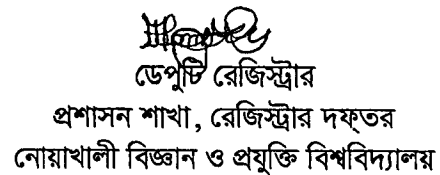 ডেপুটি রেজিস্ট্রার
প্রশাসন শাখা, রেজিস্ট্রার দফ্তর
নোয়াখালী বিজ্ঞান ও প্রযুক্তি বিশ্ববিদ্যালয়